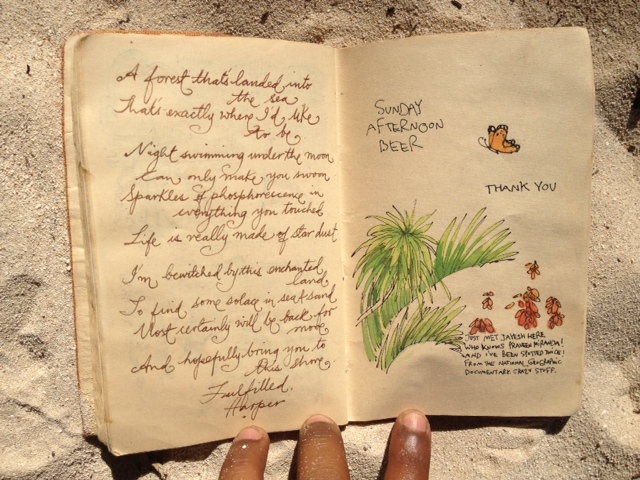 A forest that's landed into
the sea
That's exactly where I'd like
to be
Night swimming under the moon
Can only make you swoon
Sparkles of phosphorescence in
everything you touched
Life is really made of star dust
I'm bewitched by this enchanted
land
To find some solace in sea & sand
Most certainly will be back for
more
And hopefully bring you to
this shore
Fulfilled
Harper
SUNDAY
AFTERNOON
BEER
THANK YOU
JUST MET JAYESH HERE
WHO KNOWS PRAVEEN MIRANDA!
AND I'VE BEEN SPOTTED TWICE!
FROM THE NATIONAL GEOGRAPHIC
DOCUMENTARY. CRAZY STUFF.